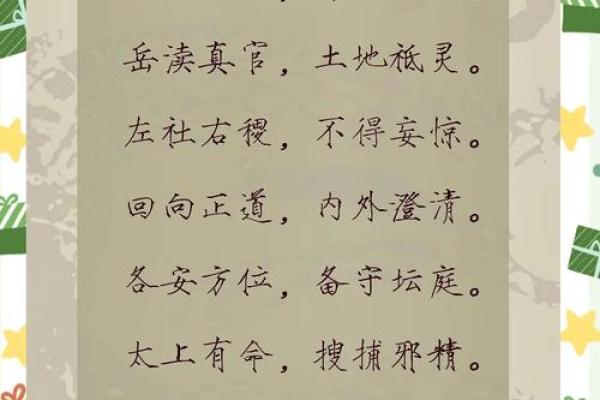 岳渎真官，土地祗灵。
左社右稷，不得妄惊。
回向正道，内外澄清。
各安方位，备守坛庭。
太上有命，搜捕邪精。